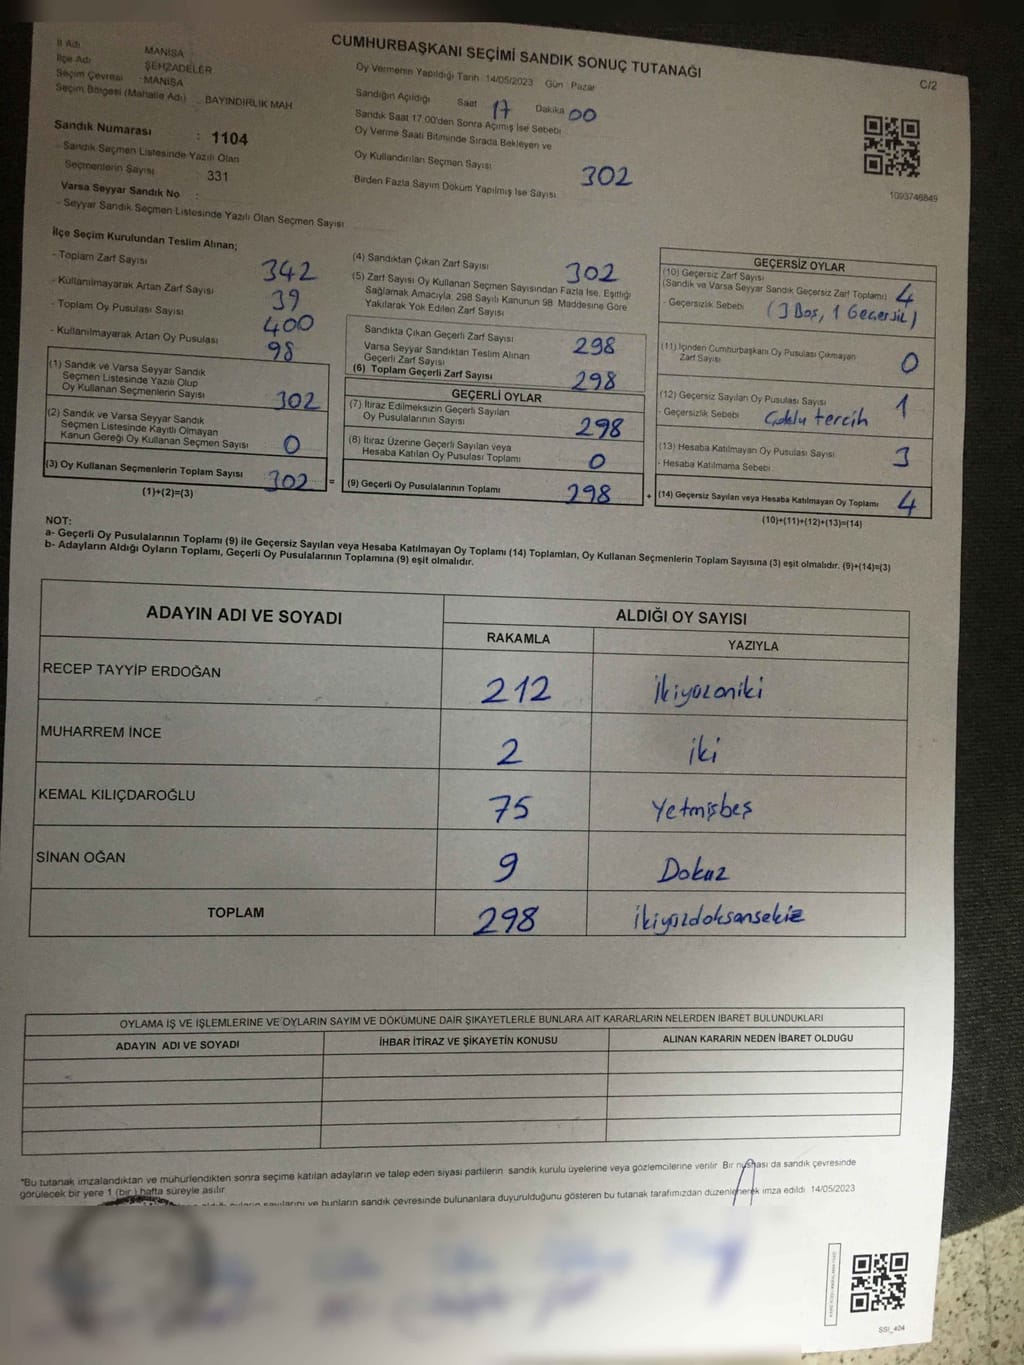 CUMHURBAŞKANI SEÇİMİ SANDIK SONUÇ TUTANAĞI
C/2
İl Adı MANİSA
İlçe Adı ŞEHZADELER
Seçim Çevresi : MANİSA
Seçim Bölgesi (Mahalle Adı) BAYINDIRLIK MAH
Sandık Numarası : 1104
- Sandık Seçmen Listesinde Yazılı Olan
Seçmenlerin Sayısı : 331
Varsa Seyyar Sandık No :
- Seyyar Sandık Seçmen Listesinde Yazılı Olan Seçmen Sayısı
Oy Vermenin Yapıldığı Tarih : 14/05/2023 Gün : Pazar
Sandığın Açıldığı Saat 17 Dakika 00
Sandık Saat 17.00'den Sonra Açılmış İse Sebebi
Oy Verme Saati Bitiminde Sırada Bekleyen ve
Oy Kullandırılan Seçmen Sayısı 302
Birden Fazla Sayım Döküm Yapılmış İse Sayısı
1093746849
İlçe Seçim Kurulundan Teslim Alınan;
- Toplam Zarf Sayısı 342
- Kullanılmayarak Artan Zarf Sayısı 39
- Toplam Oy Pusulası Sayısı 400
- Kullanılmayarak Artan Oy Pusulası 98
(1) Sandık ve Varsa Seyyar Sandık
Seçmen Listesinde Yazılı Olup
Oy Kullanan Seçmenlerin Sayısı 302
(2) Sandık ve Varsa Seyyar Sandık
Seçmen Listesinde Kayıtlı Olmayan
Kanun Gereği Oy Kullanan Seçmen Sayısı 0
(3) Oy Kullanan Seçmenlerin Toplam Sayısı 302 =
(1)+(2)=(3)
(4) Sandıktan Çıkan Zarf Sayısı 302
(5) Zarf Sayısı Oy Kullanan Seçmen Sayısından Fazla İse, Eşitliği
Sağlamak Amacıyla, 298 Sayılı Kanunun 98. Maddesine Göre
Yakılarak Yok Edilen Zarf Sayısı
Sandıkta Çıkan Geçerli Zarf Sayısı 298
Varsa Seyyar Sandıktan Teslim Alınan
Geçerli Zarf Sayısı
(6) Toplam Geçerli Zarf Sayısı 298
GEÇERLİ OYLAR
(7) İtiraz Edilmeksizin Geçerli Sayılan
Oy Pusulalarının Sayısı 298
(8) İtiraz Üzerine Geçerli Sayılan veya
Hesaba Katılan Oy Pusulası Toplamı 0
(9) Geçerli Oy Pusulalarının Toplamı 298 +
GEÇERSİZ OYLAR
(10) Geçersiz Zarf Sayısı
(Sandık ve Varsa Seyyar Sandık Geçersiz Zarf Toplamı) 4
- Geçersizlik Sebebi (3 Boş, 1 Geçersiz)
(11) İçinden Cumhurbaşkanı Oy Pusulası Çıkmayan
Zarf Sayısı 0
(12) Geçersiz Sayılan Oy Pusulası Sayısı 1
- Geçersizlik Sebebi Çoklu tercih
(13) Hesaba Katılmayan Oy Pusulası Sayısı 3
- Hesaba Katılmama Sebebi
(14) Geçersiz Sayılan veya Hesaba Katılmayan Oy Toplamı 4
(10)+(11)+(12)+(13)=(14)
NOT:
a- Geçerli Oy Pusulalarının Toplamı (9) ile Geçersiz Sayılan veya Hesaba Katılmayan Oy Toplamı (14) Toplamları, Oy Kullanan Seçmenlerin Toplam Sayısına (3) eşit olmalıdır. (9)+(14)=(3)
b- Adayların Aldığı Oyların Toplamı, Geçerli Oy Pusulalarının Toplamına (9) eşit olmalıdır.
ADAYIN ADI VE SOYADI ALDIĞI OY SAYISI
RAKAMLA YAZIYLA
RECEP TAYYİP ERDOĞAN 212 İkiyüzoniki
MUHARREM İNCE 2 iki
KEMAL KILIÇDAROĞLU 75 Yetmişbeş
SİNAN OĞAN 9 Dokuz
TOPLAM 298 ikiyüzdoksansekiz
OYLAMA İŞ VE İŞLEMLERİNE VE OYLARIN SAYIM VE DÖKÜMÜNE DAİR ŞİKAYETLERLE BUNLARA AİT KARARLARIN NELERDEN İBARET BULUNDUKLARI
ADAYIN ADI VE SOYADI İHBAR İTİRAZ VE ŞİKAYETİN KONUSU ALINAN KARARIN NEDEN İBARET OLDUĞU
"Bu tutanak imzalandıktan ve mühürlendikten sonra seçime katılan adayların ve talep eden siyasi partilerin sandık kurulu üyelerine veya gözlemcilerine verilir. Bir nüshası da sandık çevresinde
görülecek bir yere 1 (bir ) hafta süreyle asılır.
sayılarını ve bunların sandık çevresinde bulunanlara duyurulduğunu gösteren bu tutanak tarafımızdan düzenlenerek imza edildi. 14/05/2023
SSI_404